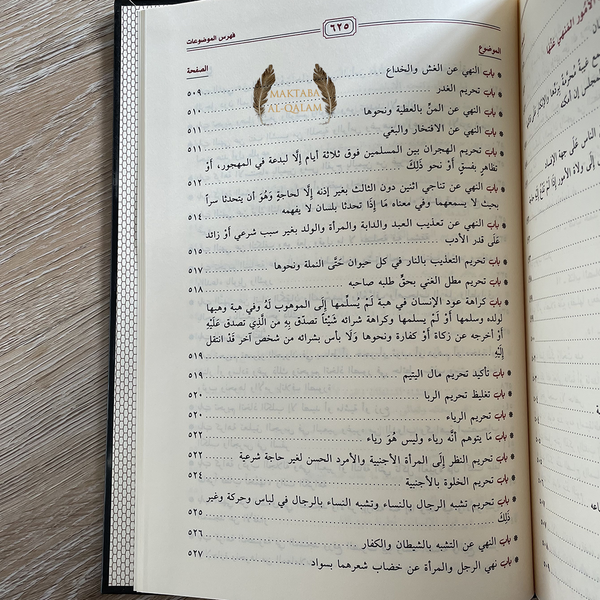 ٦٢٥
فهرس الموضوعات
الموضوع
الصفحة
MAKTABA
AL-QALAM
باب النهي عن الغش والخداع ٥٠٩
باب تحريم الغدر ٥١٠
باب النهي عن المنِّ بالعطية ونحوها ٥١١
باب النهي عن الافتخار والبغي ٥١١
باب تحريم الهجران بين المسلمين فوق ثلاثة أيام إلَّا لبدعة في المهجور، أَوْ
تظاهر بفسق أَوْ نحو ذَلِكَ ٥١٢
باب النهي عن تناجي اثنين دون الثالث بغير إذنه إلَّا لحاجةٍ وَهُوَ أن يتحدثا سراً
بحيث لا يسمعهما وفي معناه مَا إِذَا تحدثا بلسان لا يفهمه ٥١٤
باب النهي عن تعذيب العبد والدابة والمرأة والولد بغير سبب شرعي أَوْ زائد
عَلَى قدر الأدب ٥١٥
باب تحريم التعذيب بالنار في كل حيوان حَتَّى النملة ونحوها ٥١٧
باب تحريم مطل الغني بحقٍّ طلبه صاحبه ٥١٨
باب كراهة عود الإنسان في هبة لَمْ يُسلِّمها إِلَى الموهوب لَهُ وفي هبة وهبها
لولده وسلمها أَوْ لَمْ يسلمها وكراهة شرائه شَيْئاً تصدّق بِهِ من الَّذِي تصدق عَلَيْهِ
أَوْ أخرجه عن زكاة أَوْ كفارة ونحوها وَلَا بأس بشرائه من شخص آخر قَدْ انتقل
إِلَيْهِ ٥١٩
باب تأكيد تحريم مال اليتيم ٥١٩
باب تغليظ تحريم الربا ٥٢٠
باب تحريم الرياء ٥٢٠
باب مَا يتوهم أنَّه رياء وليس هُوَ رياء ٥٢٢
باب تحريم النظر إِلَى المرأة الأجنبية والأمرد الحسن لغير حاجة شرعية ٥٢٢
باب تحريم الخلوة بالأجنبية ٥٢٤
باب تحريم تشبه الرجال بالنساء وتشبه النساء بالرجال في لباس وحركة وغير
ذَلِكَ ٥٢٥
باب النهي عن التشبه بالشيطان والكفار ٥٢٦
باب نهي الرجل والمرأة عن خضاب شعرهما بسواد ٥٢٧